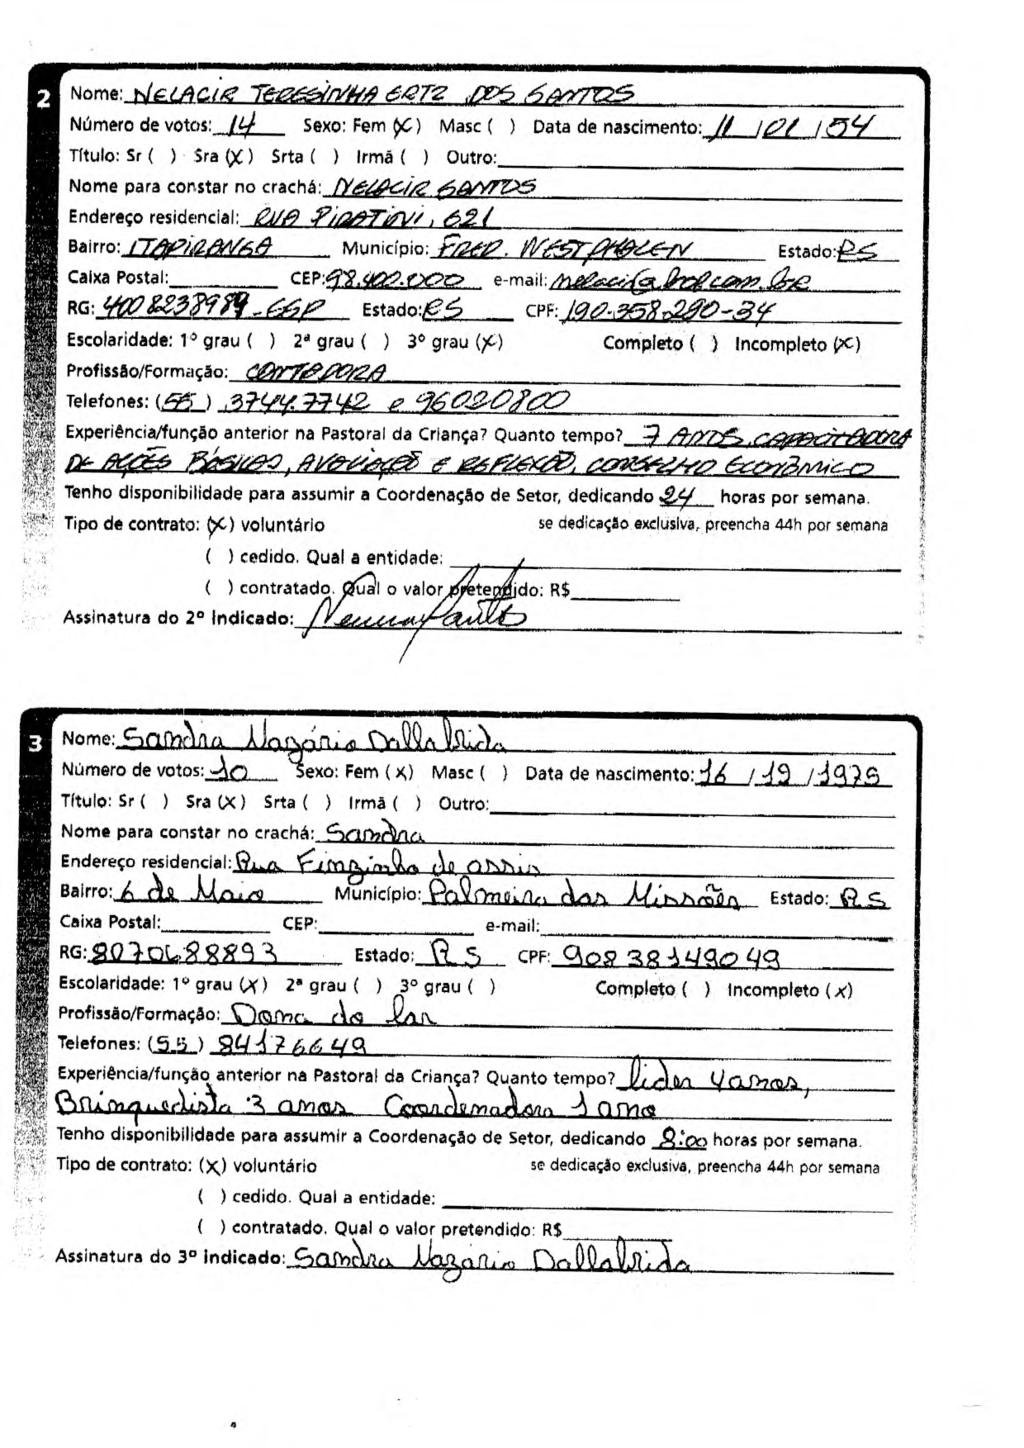 2
Nome: NELACIR TERESINHA ERTZ DOS SANTOS
Número de votos: 14 Sexo: Fem (X) Masc ( ) Data de nascimento: 11 / 01 / 54
Título: Sr ( ) Sra (X) Srta ( ) Irmã ( ) Outro:
Nome para constar no crachá: NELACIR SANTOS
Endereço residencial: RUA PIRATINI, 621
Bairro: ITAPIRANGA Município: FRED. WESTPHALEN Estado: RS
Caixa Postal: CEP: 98.400.000 e-mail:
RG: 4008238989-SSP Estado: RS CPF: 190.358.290-34
Escolaridade: 1º grau ( ) 2ª grau ( ) 3º grau (X) Completo ( ) Incompleto (X)
Profissão/Formação: CONTADORA
Telefones: (55) 3744.7742 e 96020800
Experiência/função anterior na Pastoral da Criança? Quanto tempo? 7 ANOS, CAPACITADORA
DE AÇÕES BÁSICAS, AVALIAÇÃO E REFLEXÃO, CONSELHO ECONÔMICO
Tenho disponibilidade para assumir a Coordenação de Setor, dedicando 24 horas por semana.
Tipo de contrato: (X) voluntário se dedicação exclusiva, preencha 44h por semana
( ) cedido. Qual a entidade:
( ) contratado. Qual o valor pretendido: R$
Assinatura do 2º indicado:
3
Nome: Sandra Nazário Dalla brida
Número de votos: 10 Sexo: Fem (X) Masc ( ) Data de nascimento: 16 / 19 / 1975
Título: Sr ( ) Sra (X) Srta ( ) Irmã ( ) Outro:
Nome para constar no crachá: Sandra
Endereço residencial: Rua Finzinho de assis
Bairro: 6 de Maio Município: Palmeira das Missões Estado: RS
Caixa Postal: CEP: e-mail:
RG: 8070688893 Estado: RS CPF: 90838149049
Escolaridade: 1º grau (X) 2ª grau ( ) 3º grau ( ) Completo ( ) Incompleto (X)
Profissão/Formação: Dona do lar
Telefones: (55) 84176649
Experiência/função anterior na Pastoral da Criança? Quanto tempo? lider 4 anos,
Brinquedista 3 anos Coordenadora 1 ano
Tenho disponibilidade para assumir a Coordenação de Setor, dedicando 8:00 horas por semana.
Tipo de contrato: (X) voluntário se dedicação exclusiva, preencha 44h por semana
( ) cedido. Qual a entidade:
( ) contratado. Qual o valor pretendido: R$
Assinatura do 3º indicado: Sandra Nazário Dallabrida